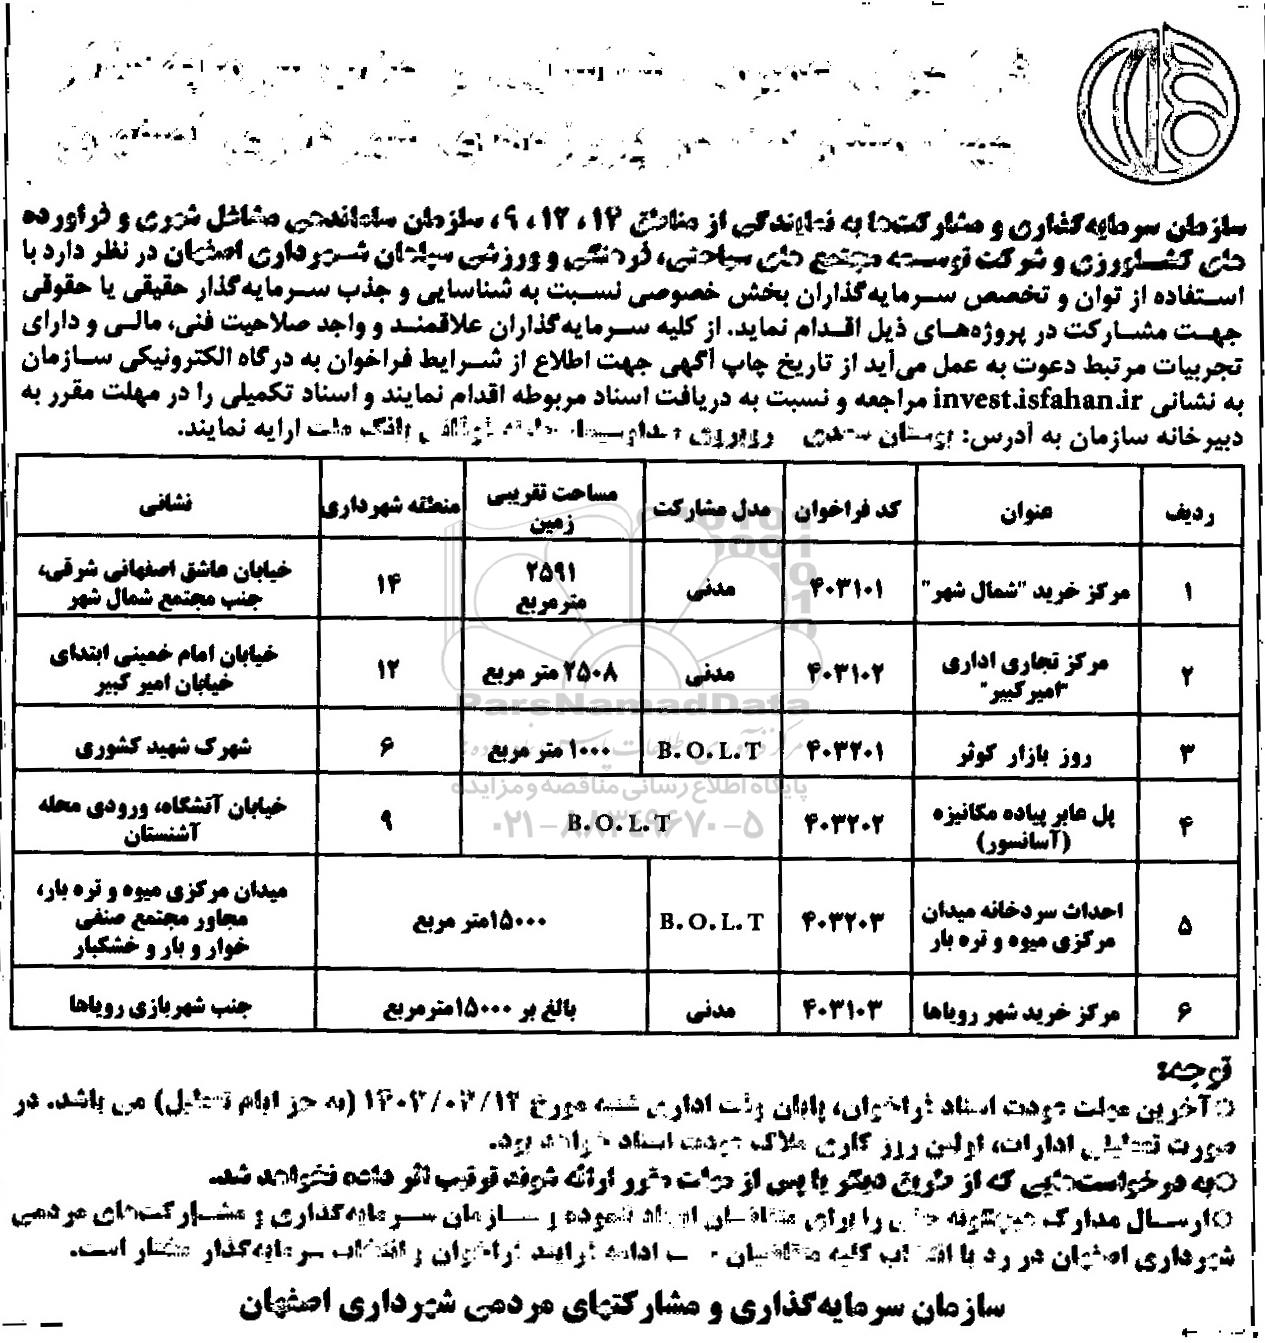 سازمان سرمایه‌گذاری و مشارکت‌ها به نمایندگی از مناطق ۱۴، ۱۲، ۹، سازمان ساماندهی مشاغل شهری و فرآورده
های کشاورزی و شرکت توسعه مجتمع های سیاحتی، فرهنگی و ورزشی سپاهان شهرداری اصفهان در نظر دارد با
استفاده از توان و تخصص سرمایه‌گذاران بخش خصوصی نسبت به شناسایی و جذب سرمایه‌گذار حقیقی یا حقوقی
جهت مشارکت در پروژه‌های ذیل اقدام نماید. از کلیه سرمایه‌گذاران علاقمند و واجد صلاحیت فنی، مالی و دارای
تجربیات مرتبط دعوت به عمل می‌آید از تاریخ چاپ آگهی جهت اطلاع از شرایط فراخوان به درگاه الکترونیکی سازمان
به نشانی invest.isfahan.ir مراجعه و نسبت به دریافت اسناد مربوطه اقدام نمایند و اسناد تکمیلی را در مهلت مقرر به
دبیرخانه سازمان به آدرس: بوستان سعدی روبروی بانک ملت ارایه نمایند.
ردیف عنوان کد فراخوان مدل مشارکت مساحت تقریبی زمین منطقه شهرداری نشانی
۱ مرکز خرید "شمال شهر" ۴۰۳۱۰۱ مدنی ۲۵۹۱ مترمربع ۱۴ خیابان عاشق اصفهانی شرقی، جنب مجتمع شمال شهر
۲ مرکز تجاری اداری "امیرکبیر" ۴۰۳۱۰۲ مدنی ۲۵۰۸ متر مربع ۱۲ خیابان امام خمینی ابتدای خیابان امیر کبیر
۳ روز بازار کوثر ۴۰۳۲۰۱ B.O.L.T ۱۰۰۰ متر مربع ۶ شهرک شهید کشوری
۴ پل عابر پیاده مکانیزه (آسانسور) ۴۰۳۲۰۲ B.O.L.T ۹ خیابان آتشگاه، ورودی محله آشنستان
۵ احداث سردخانه میدان مرکزی میوه و تره بار ۴۰۳۲۰۳ B.O.L.T ۱۵۰۰۰متر مربع میدان مرکزی میوه و تره بار، مجاور مجتمع صنفی خوار و بار و خشکبار
۶ مرکز خرید شهر رویاها ۴۰۳۱۰۳ مدنی بالغ بر ۱۵۰۰۰مترمربع جنب شهربازی رویاها
ParsNamadData
پایگاه اطلاع رسانی مناقصه و مزایده
۰۲۱-۸۸۳۴۹۶۷۰-۵
توجه:
آخرین مهلت عودت اسناد فراخوان، پایان وقت اداری شنبه مورخ (به جز ایام تعطیل) می باشد. در
صورت تعطیلی ادارات، اولین روز کاری ملاک عودت اسناد خواهد بود.
به درخواست‌هایی که از طریق دیگر یا پس از مهلت مقرر ارائه شوند ترتیب اثر داده نخواهد شد.
ارسال مدارک هیچگونه حقی را برای متقاضیان ایجاد ننموده و سازمان سرمایه‌گذاری و مشارکت‌های مردمی
شهرداری اصفهان در رد یا انتخاب کلیه متقاضیان ادامه فرایند فراخوان و انتخاب سرمایه‌گذار مختار است.
سازمان سرمایه‌گذاری و مشارکتهای مردمی شهرداری اصفهان